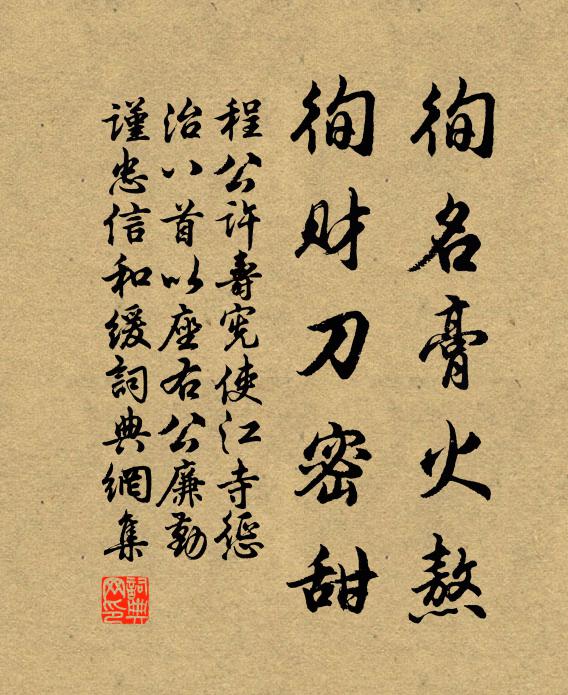 徇名膏火熬
徇财刀密甜
程公许寿宪使江寺惩
治八首以座右公廉勤
谨忠信和缓词典網集
詞典网印